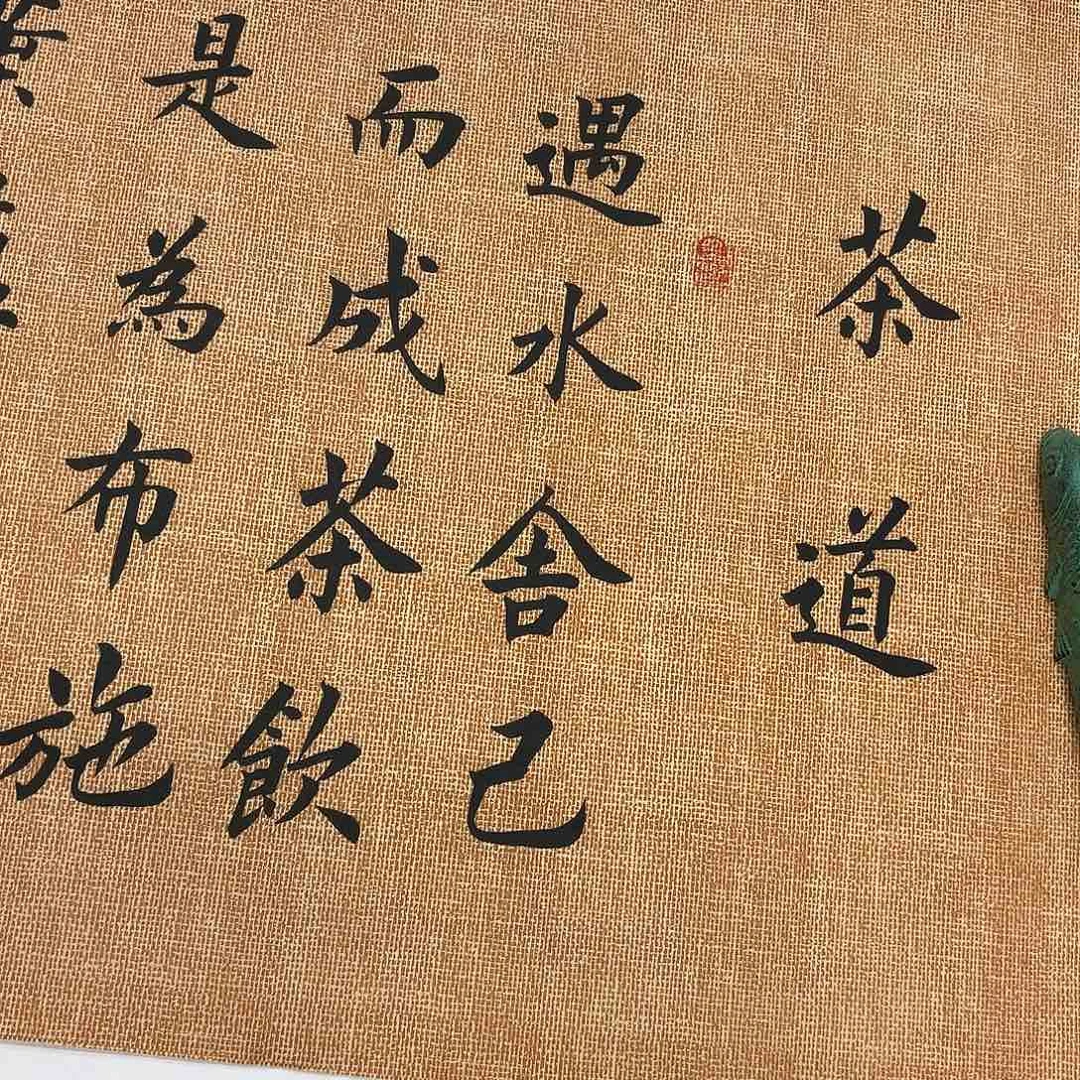 茶道
遇水舍己
而成茶飲
是為布施